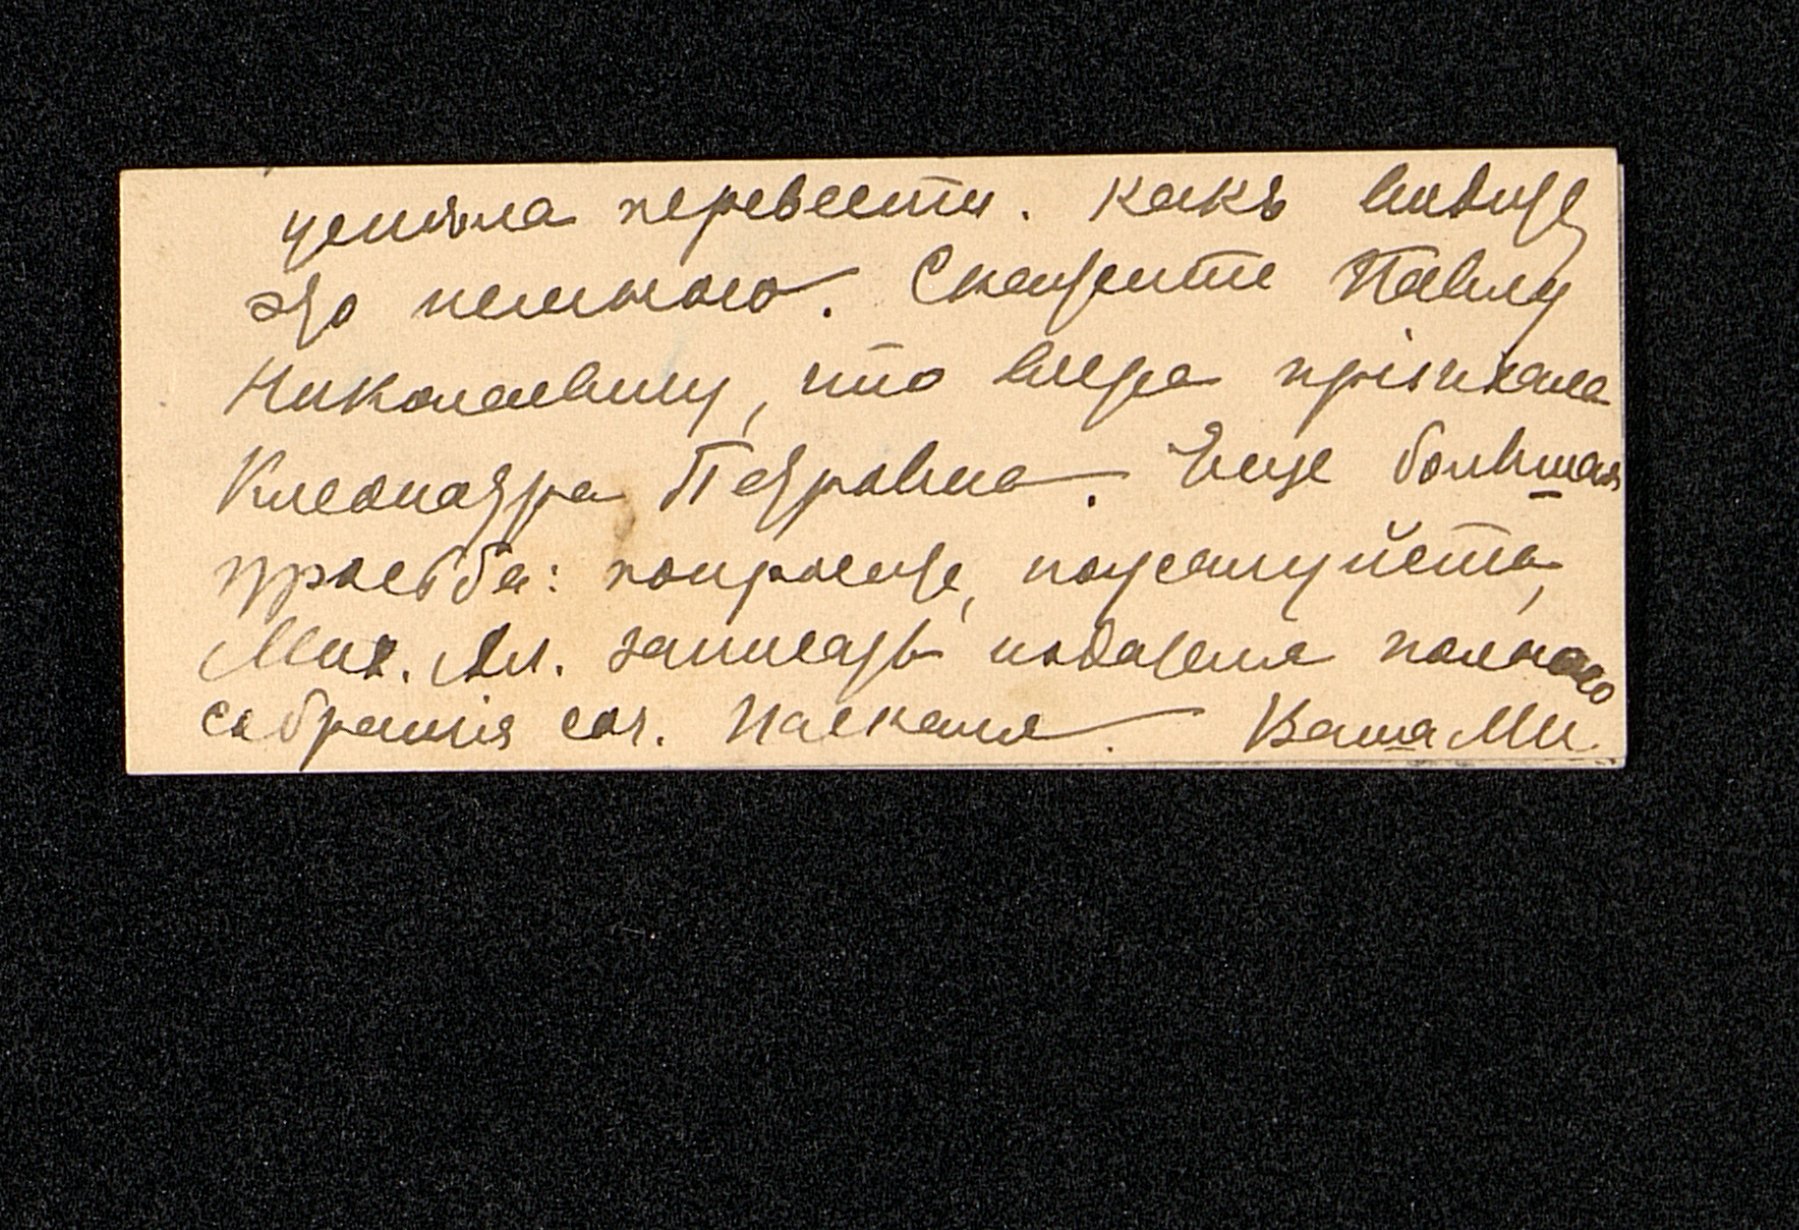 успѣла перевести. какъ видите
это немного. Скажите Павлу
Николаевичу, что вчера пріѣхала
Клеопатра Петровна. Еще большая
просьба: попросите, пожалуйста,
Мих. Ал. записать изданія полного
собранія соч. Паскаля. Ваша МИ.